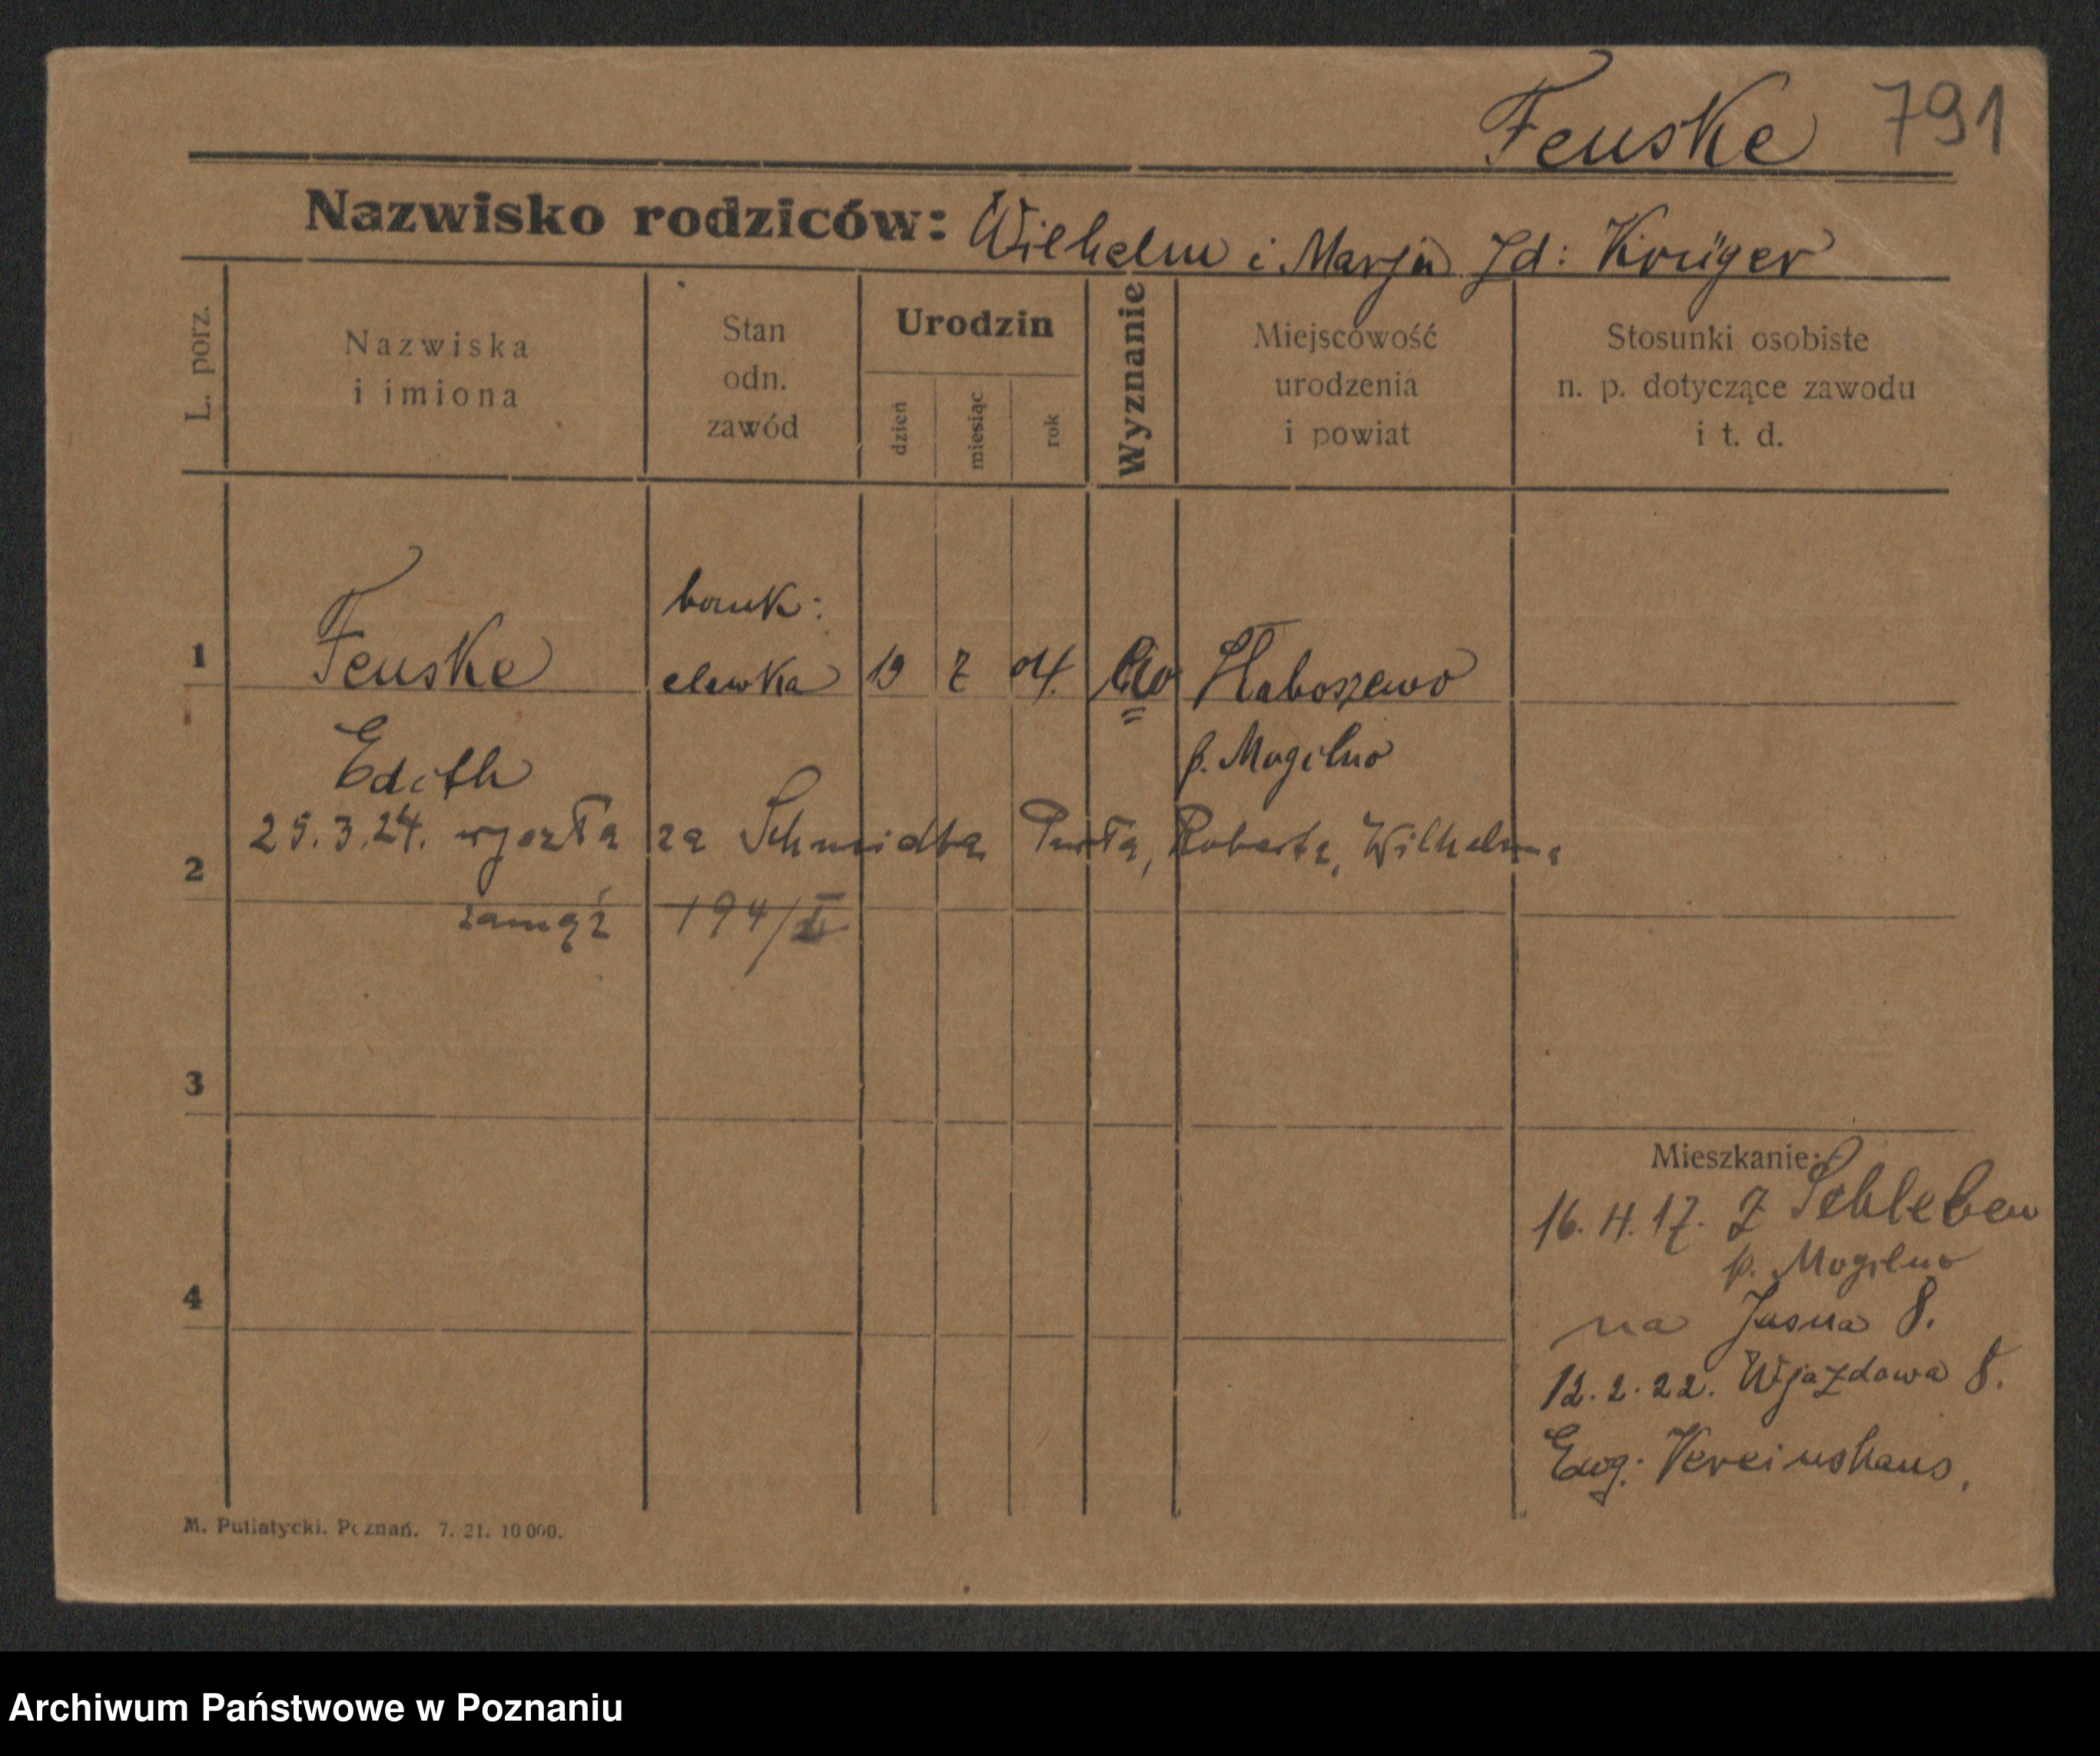 Fenske 791
Nazwisko rodziców: Wilhelm i Marja Zd: Krüger
L. porz.
Nazwiska
i imiona
Stan
odn.
zawód
Urodzin
dzień
miesiąc
rok
Wyznanie
Miejscowość
urodzenia
i powiat
Stosunki osobiste
n. p. dotyczące zawodu
i t. d.
bank:
1 Fenske elewka 19 7 04. Ew Hłaboszewo
Edith p. Mogilno
25.3.24. wyszła za Schmidta Pawła, Roberta, Wilhelma
2
zamąż 194/II
3
Mieszkanie:
16. 4. 17. Z Schleben
p. Mogilno
4
na Jasna 8.
12. 2. 22. Wjazdowa 8.
Ewg: Vereinshaus.
M. Putiatycki. Poznań. 7. 21. 10 000.
Archiwum Państwowe w Poznaniu